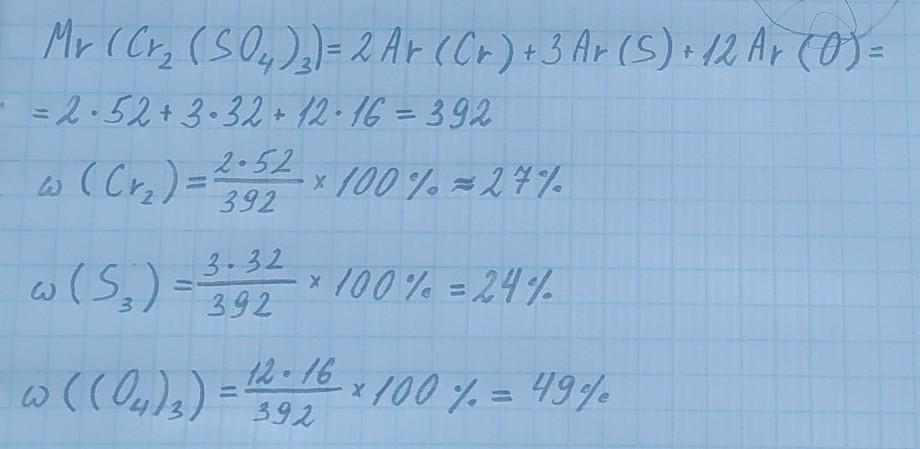 Mr (Cr₂(SO₄)₃) = 2Ar(Cr) + 3Ar(S) + 12Ar(O) =
= 2·52 + 3·32 + 12·16 = 392
ω(Cr₂) = 2·52/392 × 100% ≈ 27%
ω(S₃) = 3·32/392 × 100% = 24%
ω((O₄)₃) = 12·16/392 × 100% = 49%